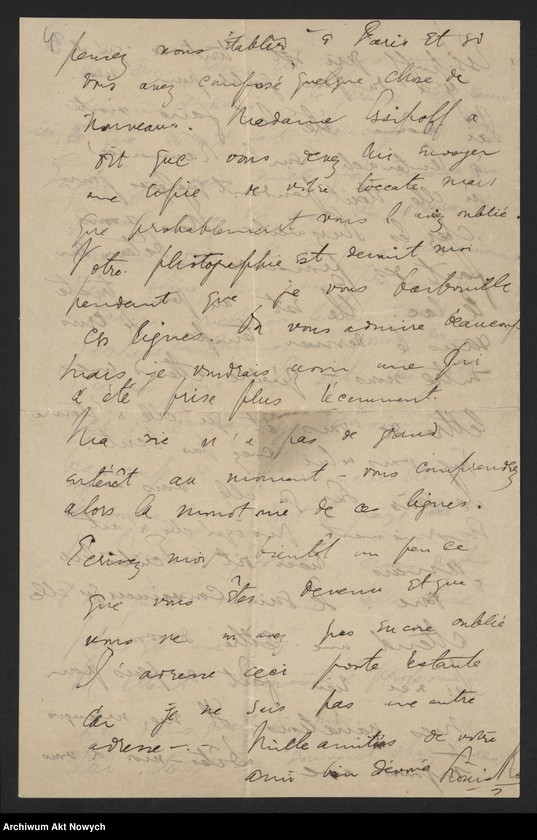 4
pensez vous établir à Paris et si
vous avez composé quelque chose de
nouveau. Madame Essipoff a
dit que vous devez lui envoyer
une copie de votre toccata mais
que probablement vous l'avez oublié.
Votre photographie est devant moi
pendant que je vous barbouille
ces lignes On vous admire beaucoup
mais je voudrais avoir une qui
a été prise plus récemment.
Ma vie n'a pas de grand
intérêt au moment – vous comprendrez
alors la monotonie de ce lignes.
Ecrivez moi bientôt un peu ce
que vous êtes devenu et que
vous ne m'avez pas encore oublié
J'adresse ceci poste restante
Car je ne sais pas une autre
adresse –. – Mille amitiés de votre
ami bien dévoué
Archiwum Akt Nowych